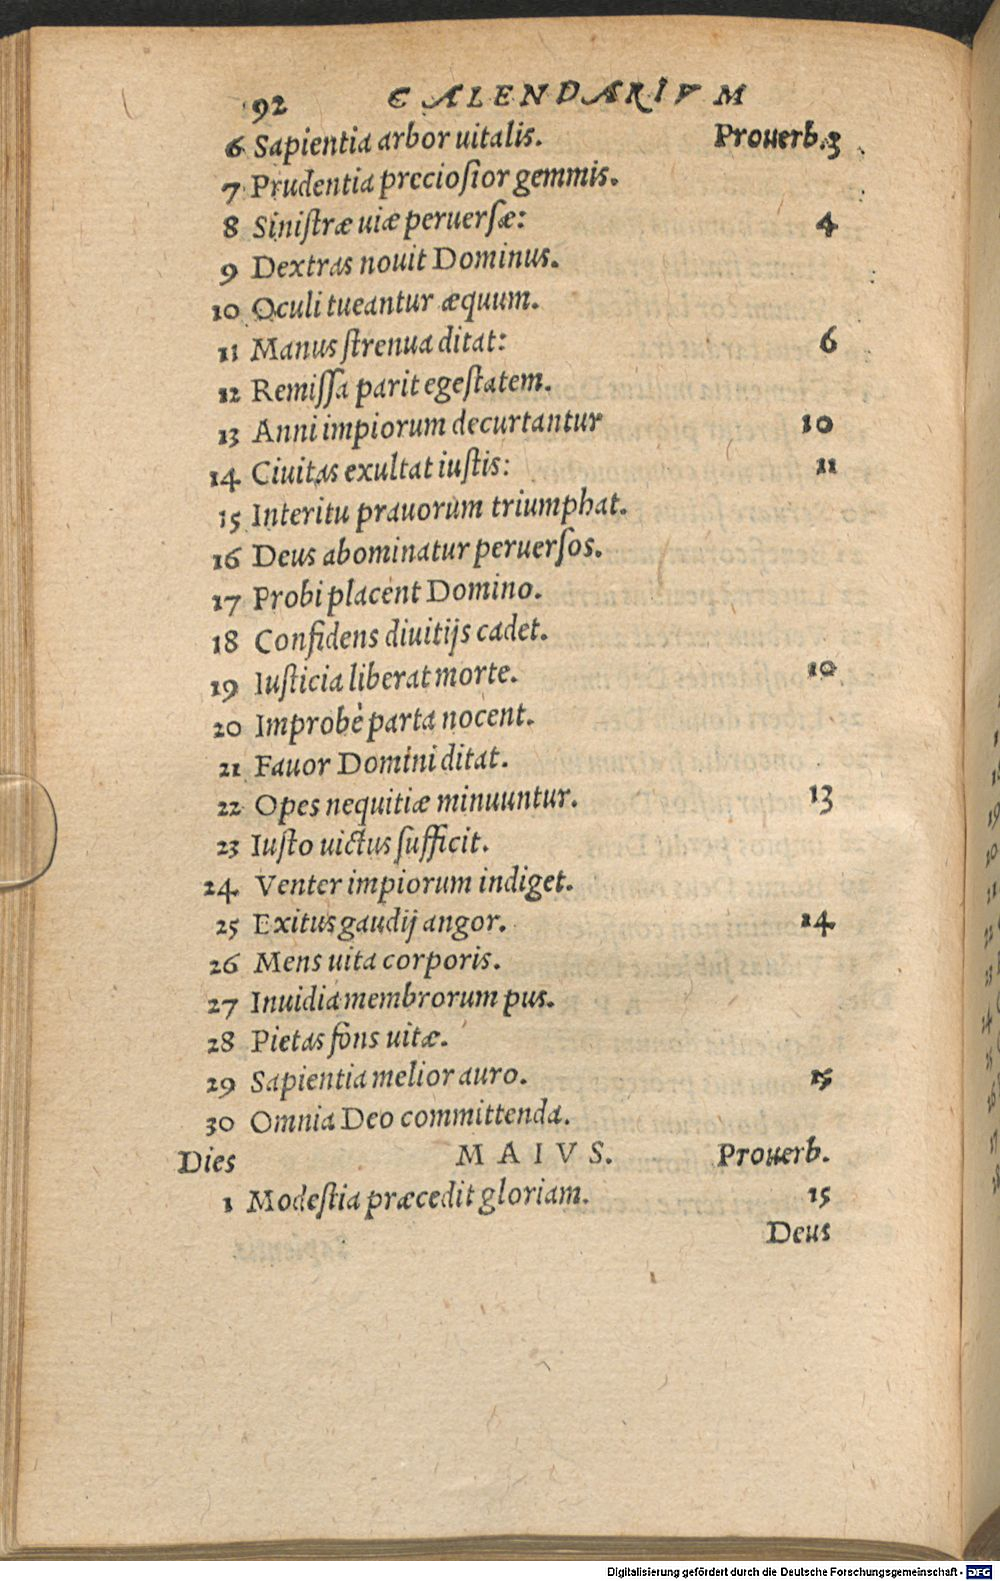 92 CALENDARIVM
6 Sapientia arbor uitalis. Prouerb. 3
7 Prudentia preciosior gemmis.
8 Sinistræ uiæ peruersæ: 4
9 Dextras nouit Dominus.
10 Oculi tueantur æquum.
11 Manus strenua ditat: 6
12 Remissa parit egestatem.
13 Anni impiorum decurtantur 10
14 Ciuitas exultat iustis: 11
15 Interitu prauorum triumphat.
16 Deus abominatur peruersos.
17 Probi placent Domino.
18 Confidens diuitijs cadet.
19 Iusticia liberat morte. 10
20 Improbè parta nocent.
21 Fauor Domini ditat.
22 Opes nequitiæ minuuntur. 13
23 Iusto uictus sufficit.
24 Venter impiorum indiget.
25 Exitus gaudij angor. 14
26 Mens uita corporis.
27 Inuidia membrorum pus.
28 Pietas fons uitæ.
29 Sapientia melior auro. 15
30 Omnia Deo committenda.
Dies MAIVS. Prouerb.
1 Modestia præcedit gloriam. 15
Deus
Digitalisierung gefördert durch die Deutsche Forschungsgemeinschaft - DFG